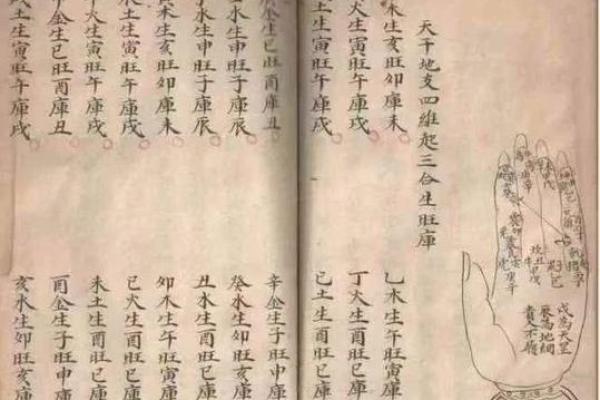 天干地支四維起三合生旺庫
木生亥旺卯庫未
火生寅旺午庫戌
土生寅旺午庫戌
乙木生午旺寅庫
丁火生酉旺巳庫
己土生酉旺巳庫
金生巳旺酉庫丑
水生申旺子庫辰
水生申旺子庫辰
木生亥旺卯庫未
土生寅旺午庫戌
火生寅旺午庫戌
申金生巳旺酉庫丑
土生寅旺午庫戌
辛金生子旺申庫
癸水生卯旺亥庫
丑水生酉旺巳庫
卯木生午旺寅庫
巳火生酉旺巳庫
未土生酉旺巳庫
酉金生子旺申庫
亥水生卯旺亥庫
戌為天罡
辰為地網
貴人不臨